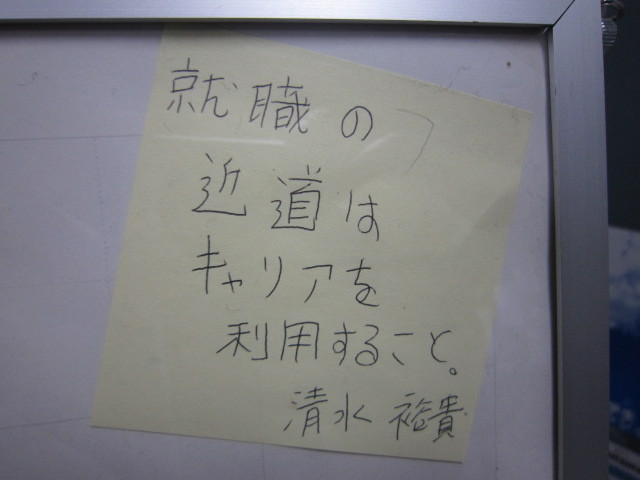 就職の
近道は
キャリアを
利用すること。
清水 裕貴